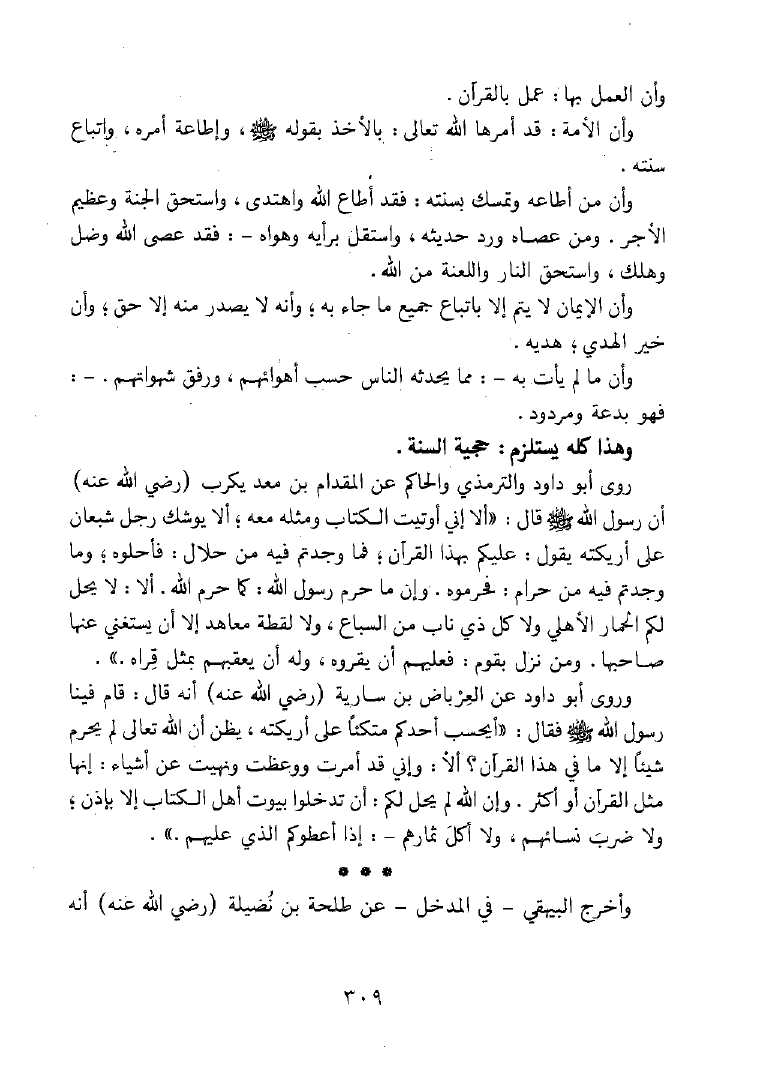 وأن العمل بها : عمل بالقرآن .
وأن الأمة : قد أمرها الله تعالى : بالأخذ بقوله ﷺ ، وإطاعة أمره ، واتباع
سنته .
وأن من أطاعه وتمسك بسنته : فقد أطاع الله واهتدى ، واستحق الجنة وعظيم
الأجر . ومن عصاه ورد حديثه ، واستقل برأيه وهواه - : فقد عصى الله وضل
وهلك ، واستحق النار واللعنة من الله .
وأن الإيمان لا يتم إلا باتباع جميع ما جاء به ؛ وأنه لا يصدر منه إلا حق ؛ وأن
خير الهدي ؛ هديه .
وأن ما لم يأت به - : مما يحدثه الناس حسب أهوائهم ، ورفق شهواتهم . - :
فهو بدعة ومردود .
وهذا كله يستلزم : حجية السنة .
روى أبو داود والترمذي والحاكم عن المقدام بن معد يكرب (رضي الله عنه)
أن رسول الله ﷺ قال : «ألا إني أوتيت الكتاب ومثله معه ؛ ألا يوشك رجل شبعان
على أريكته يقول : عليكم بهذا القرآن ؛ فما وجدتم فيه من حلال : فأحلوه ؛ وما
وجدتم فيه من حرام : فحرموه . وإن ما حرم رسول الله : كما حرم الله . ألا : لا يحل
لكم الحمار الأهلي ولا كل ذي ناب من السباع ، ولا لقطة معاهد إلا أن يستغني عنها
صاحبها . ومن نزل بقوم : فعليهم أن يقروه ، وله أن يعقبهم بمثل قِراه .» .
وروى أبو داود عن العِرْباض بن سارية (رضي الله عنه) أنه قال : قام فينا
رسول الله ﷺ فقال : «أيحسب أحدكم متكئاً على أريكته ، يظن أن الله تعالى لم يحرم
شيئاً إلا ما في هذا القرآن ؟ ألا : وإني قد أمرت ووعظت ونهيت عن أشياء : إنها
مثل القرآن أو أكثر . وإن الله لم يحل لكم : أن تدخلوا بيوت أهل الكتاب إلا بإذن ؛
ولا ضربَ نسائهم ، ولا أكلَ ثمارهم - : إذا أعطوكم الذي عليهم .» .
* * *
وأخرج البيهقي - في المدخل - عن طلحة بن نُضيلة (رضي الله عنه) أنه
٣٠٩